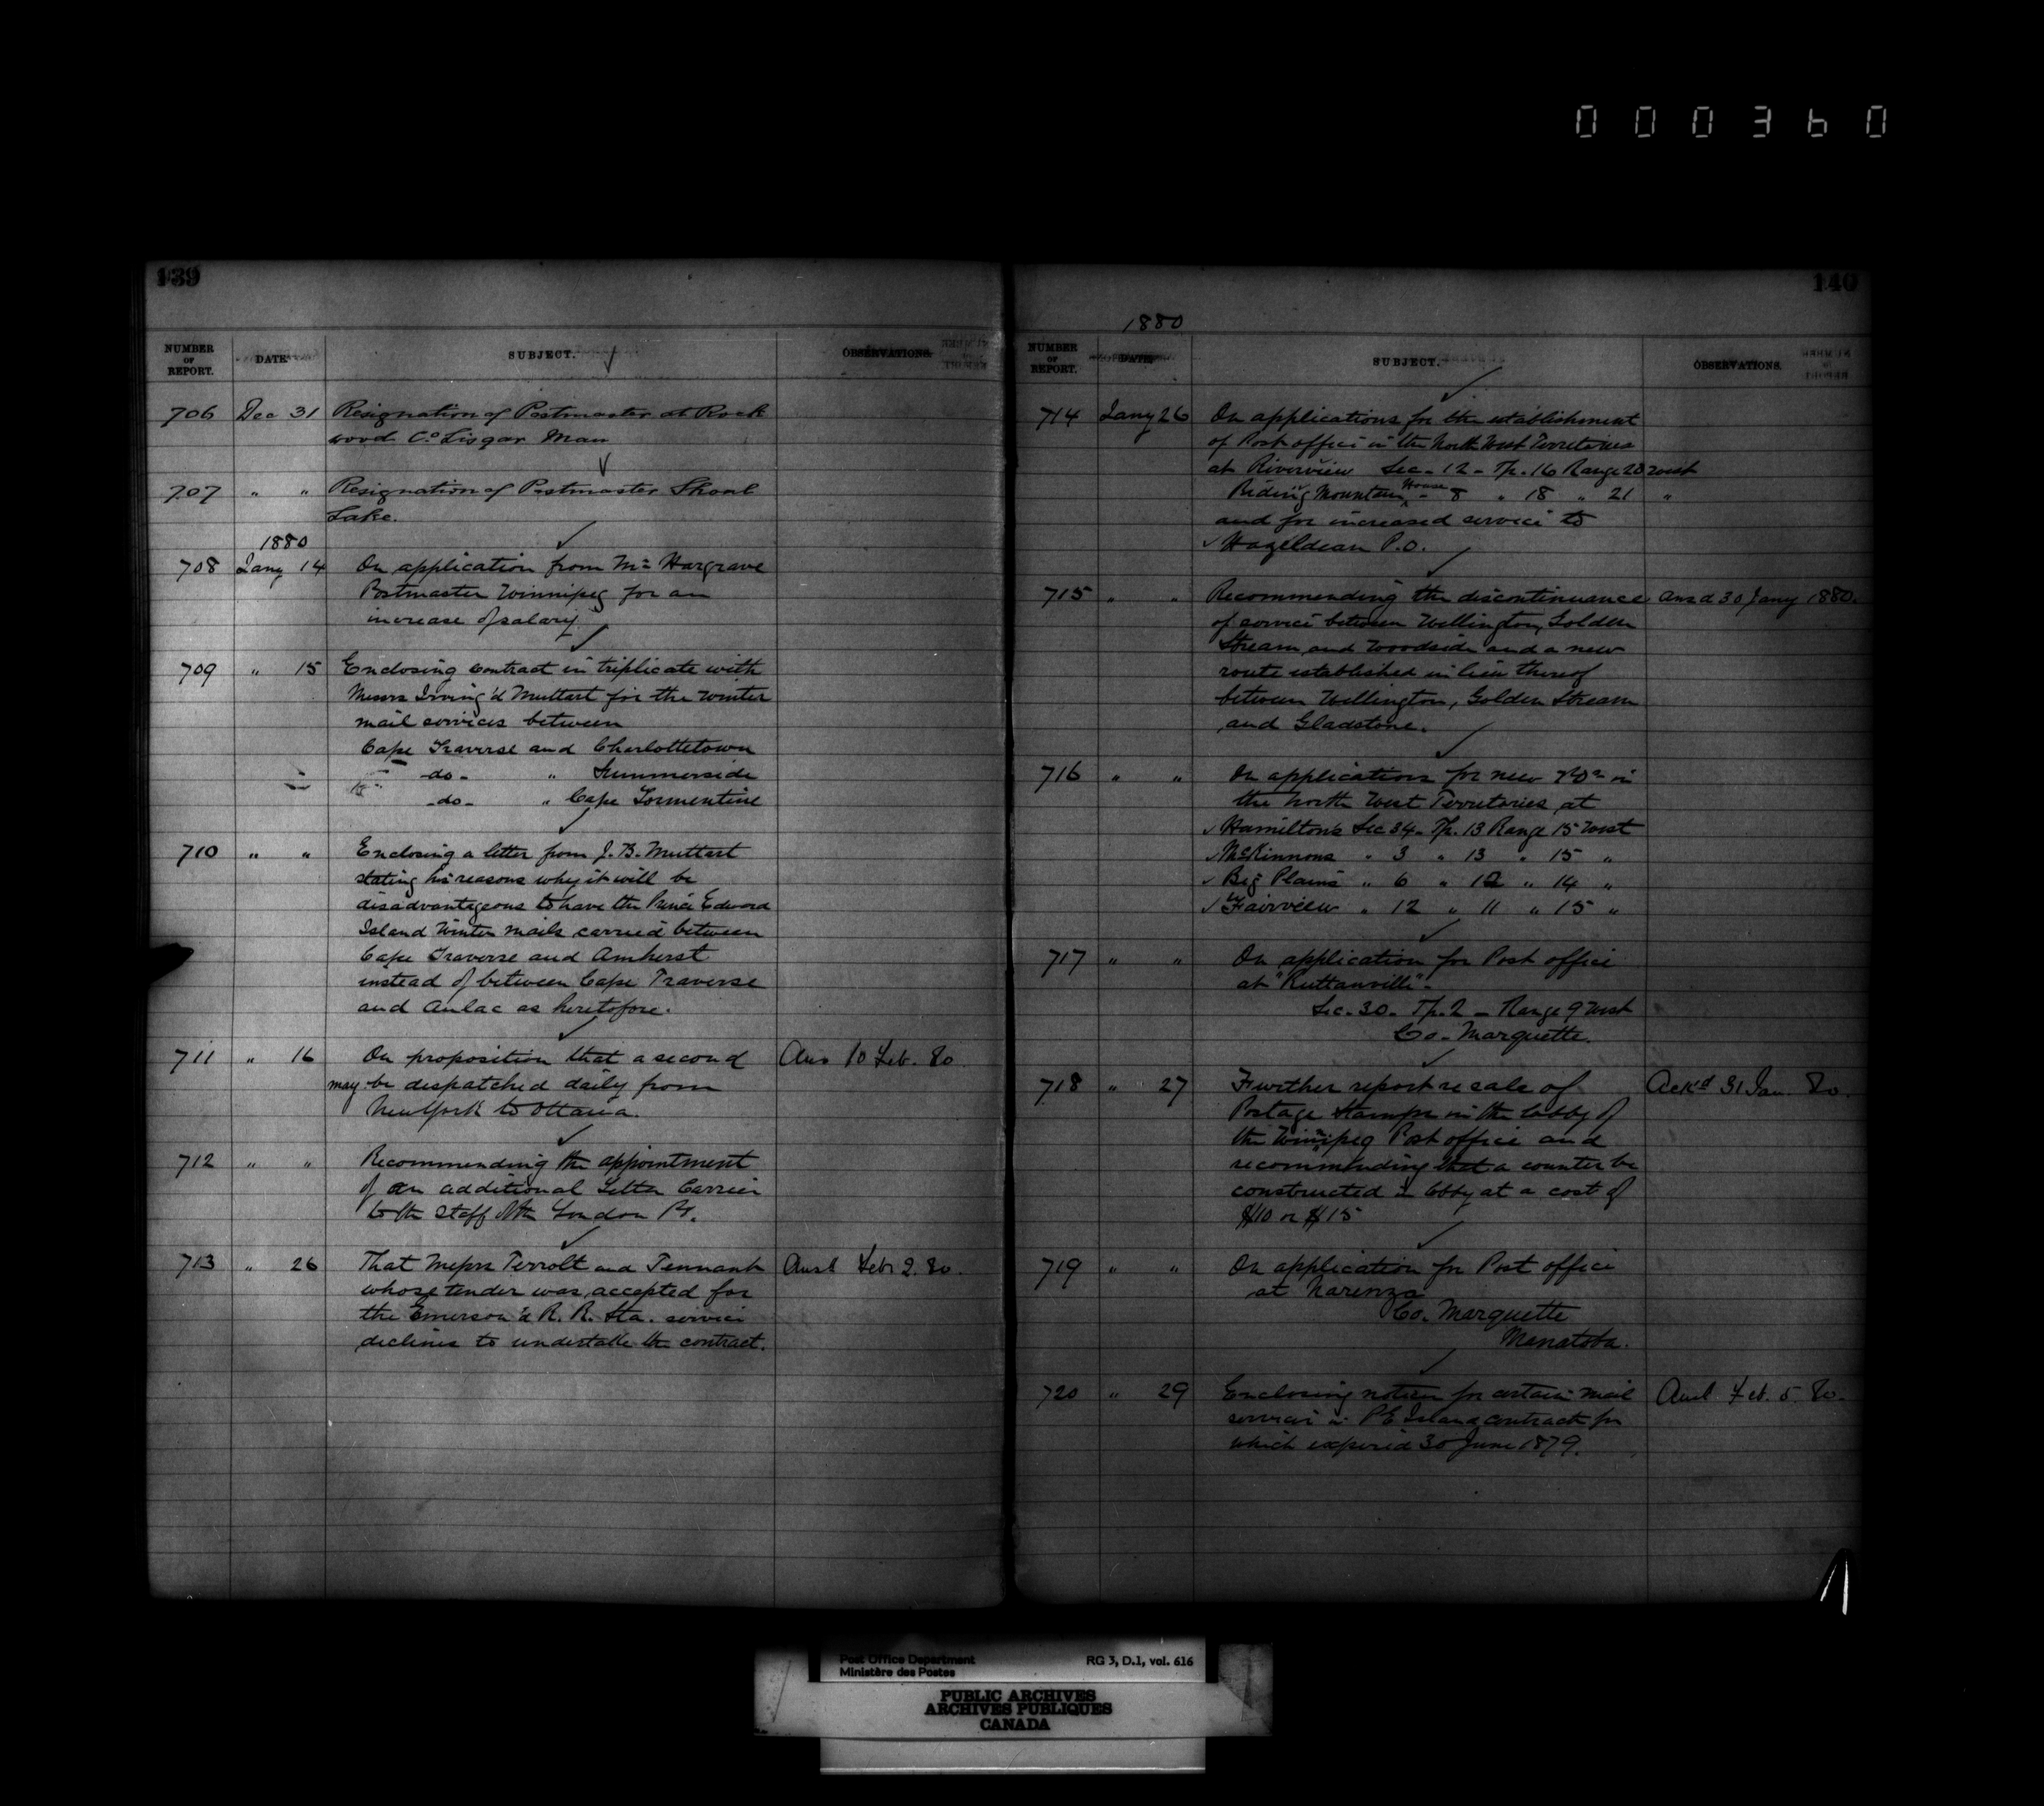 000360
139
NUMBER OF REPORT. DATE SUBJECT. OBSERVATIONS.
706 Dec 31 Resignation of Postmaster at Rock
wood Co Lisgar Man
707 " " Resignation of Postmaster Shoal
Lake.
1880
708 Jany 14 On application from Mr Hargrave
Postmaster Winnipeg for an
increase of salary
709 " 15 Enclosing contract in triplicate with
Messrs Irving & Muttart for the winter
mail services between
Cape Traverse and Charlottetown
-do- " Summerside
-do- " Cape Tormentine
710 " " Enclosing a letter from J. B. Muttart
stating his reasons why it will be
disadvantageous to have the Prince Edward
Island Winter mails carried between
Cape Traverse and Amherst
instead of between Cape Traverse
and Aulac as heretofore.
711 " 16 On proposition that a second Ans 10 Feb. 80
may be despatched daily from
New York to Ottawa.
712 " " Recommending the appointment
of an additional Letter Carrier
to the staff of the London
713 " 26 That Messrs and Tennant Ansd Feb 2. 80.
whose tender was accepted for
the Emerson & R. R. Sta. service
declines to undertake the contract.
140
1880
NUMBER OF REPORT. DATE SUBJECT. OBSERVATIONS.
714 Jany 26 On applications for the establishment
of Post office in the North West Territories
at Riverview Sec - 12 - Tp. 16 Range 23 west
Riding Mountain House - 8 " 18 " 21 "
and for increased service to
Hazeldean P.O.
715 " " Recommending the discontinuance Ansd 30 Jany 1880.
of service between Wellington, Golden
Stream and Woodside and a new
route established in lieu thereof
between Wellington, Golden Stream
and Gladstone.
716 " " On applications for new POs in
the North West Territories at
Hamiltons Sec 34 - Tp. 13 Range 15 West
McKinnons " 3 " 13 " 15 "
Big Plains " 6 " 12 " 14 "
Fairview " 12 " 11 " 15 "
717 " " On application for Post office
at "Ruttanville" -
Sec - 30 - Tp. 2 - Range 9 West
Co - Marquette.
718 " 27 Further report re sale of Ackd 31 Jan. 80.
Postage Stamps in the lobby of
the Winnipeg Post office and
recommending that a counter be
constructed in lobby at a cost of
$10 or $15
719 " " On application for Post office
at Narenza
Co. Marquette
Manatoba.
720 " 29 Enclosing notices for certain mail Ansd Feb. 5 80.
services in P E Island contracts for
which expired 30 June 1879.
Post Office Department
Ministère des Postes
RG 3, D.1, vol. 616
PUBLIC ARCHIVES
ARCHIVES PUBLIQUES
CANADA